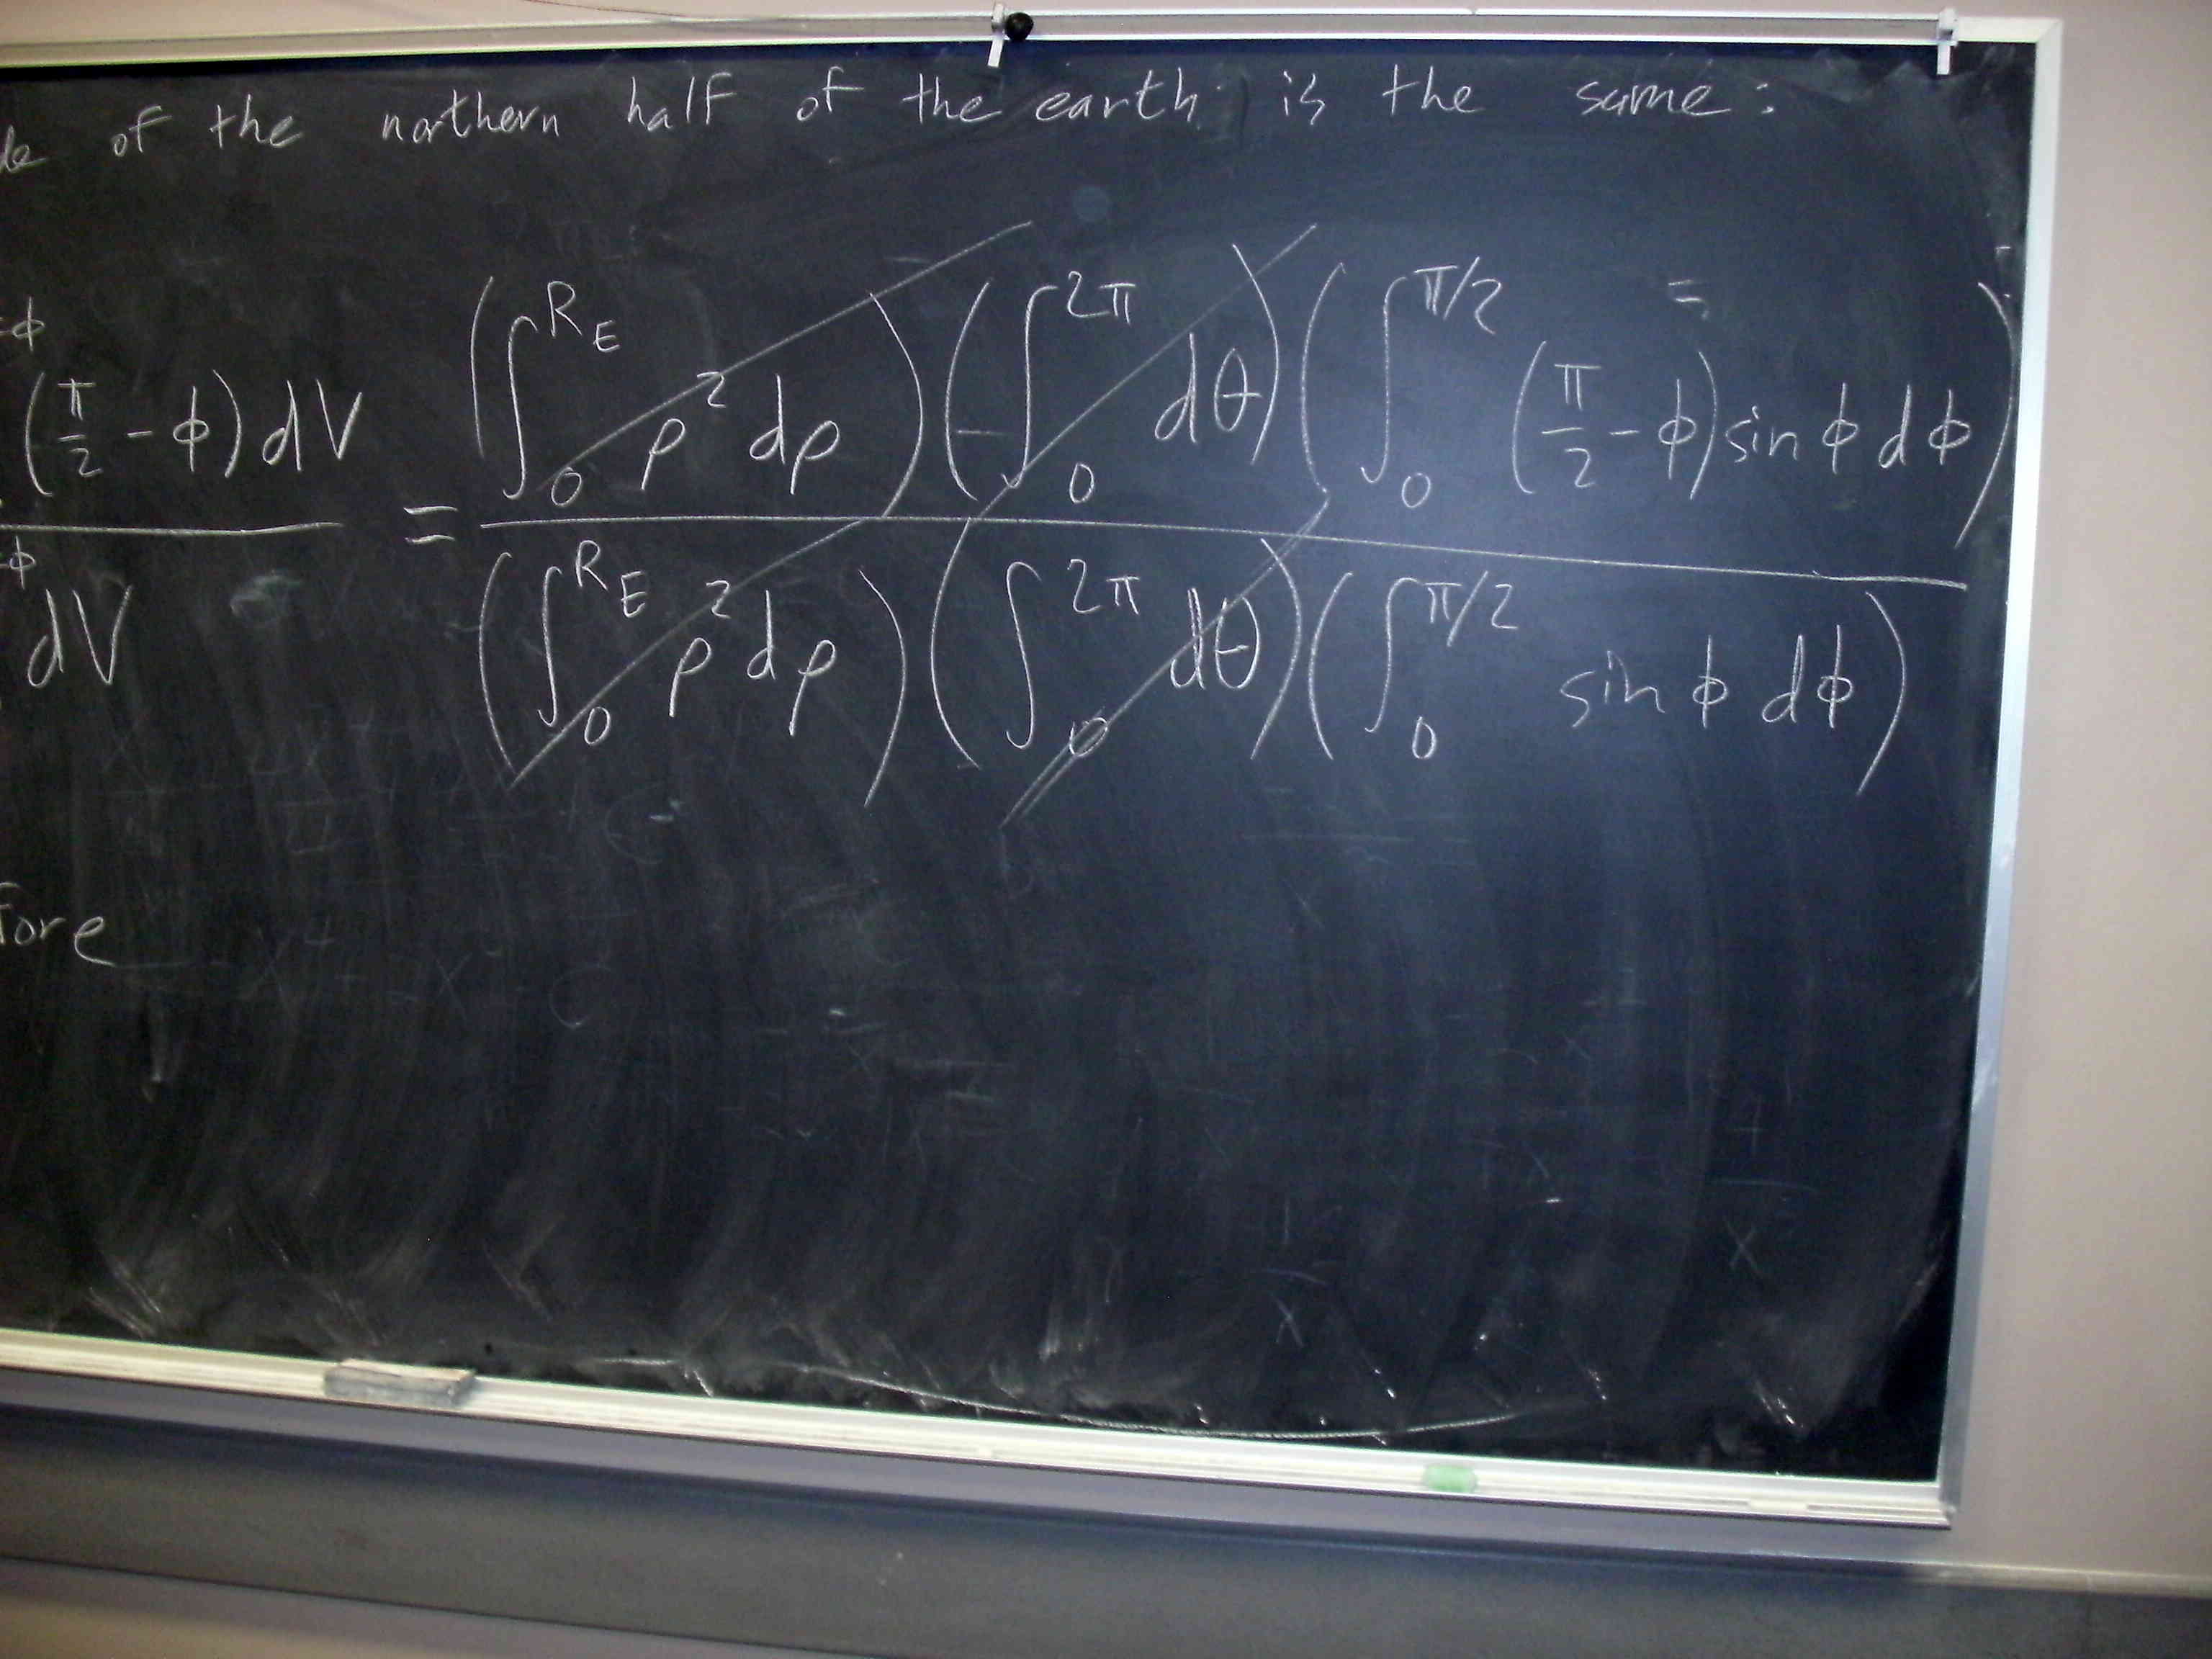 of the northern half of the earth is the same:
(π/2 - φ) dV = (∫₀^{R_E} ρ² dρ) (∫₀^{2π} dθ) (∫₀^{π/2} (π/2 - φ) sin φ dφ)
dV (∫₀^{R_E} ρ² dρ) (∫₀^{2π} dθ) (∫₀^{π/2} sin φ dφ)
fore